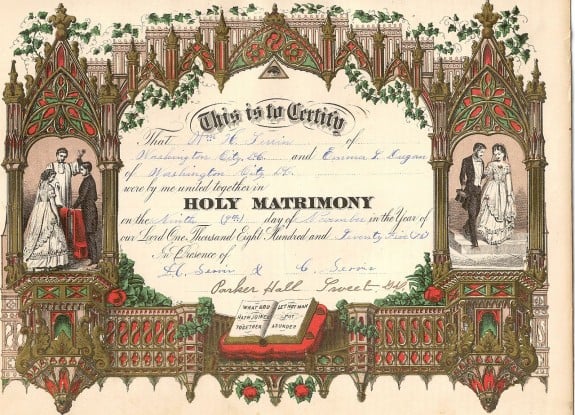 This is to Certify
That Wm H. of
Washington City D.C. and Emma L. Dugan
of Washington City D.C.
were by me united together in
HOLY MATRIMONY
on the Ninth (9th) day of November in the Year of
our Lord One Thousand Eight Hundred and Seventy Five (75)
In Presence of
&
Parker Hall Sweet
WHAT GOD HATH JOINED TOGETHER
LET NOT MAN PUT ASUNDER